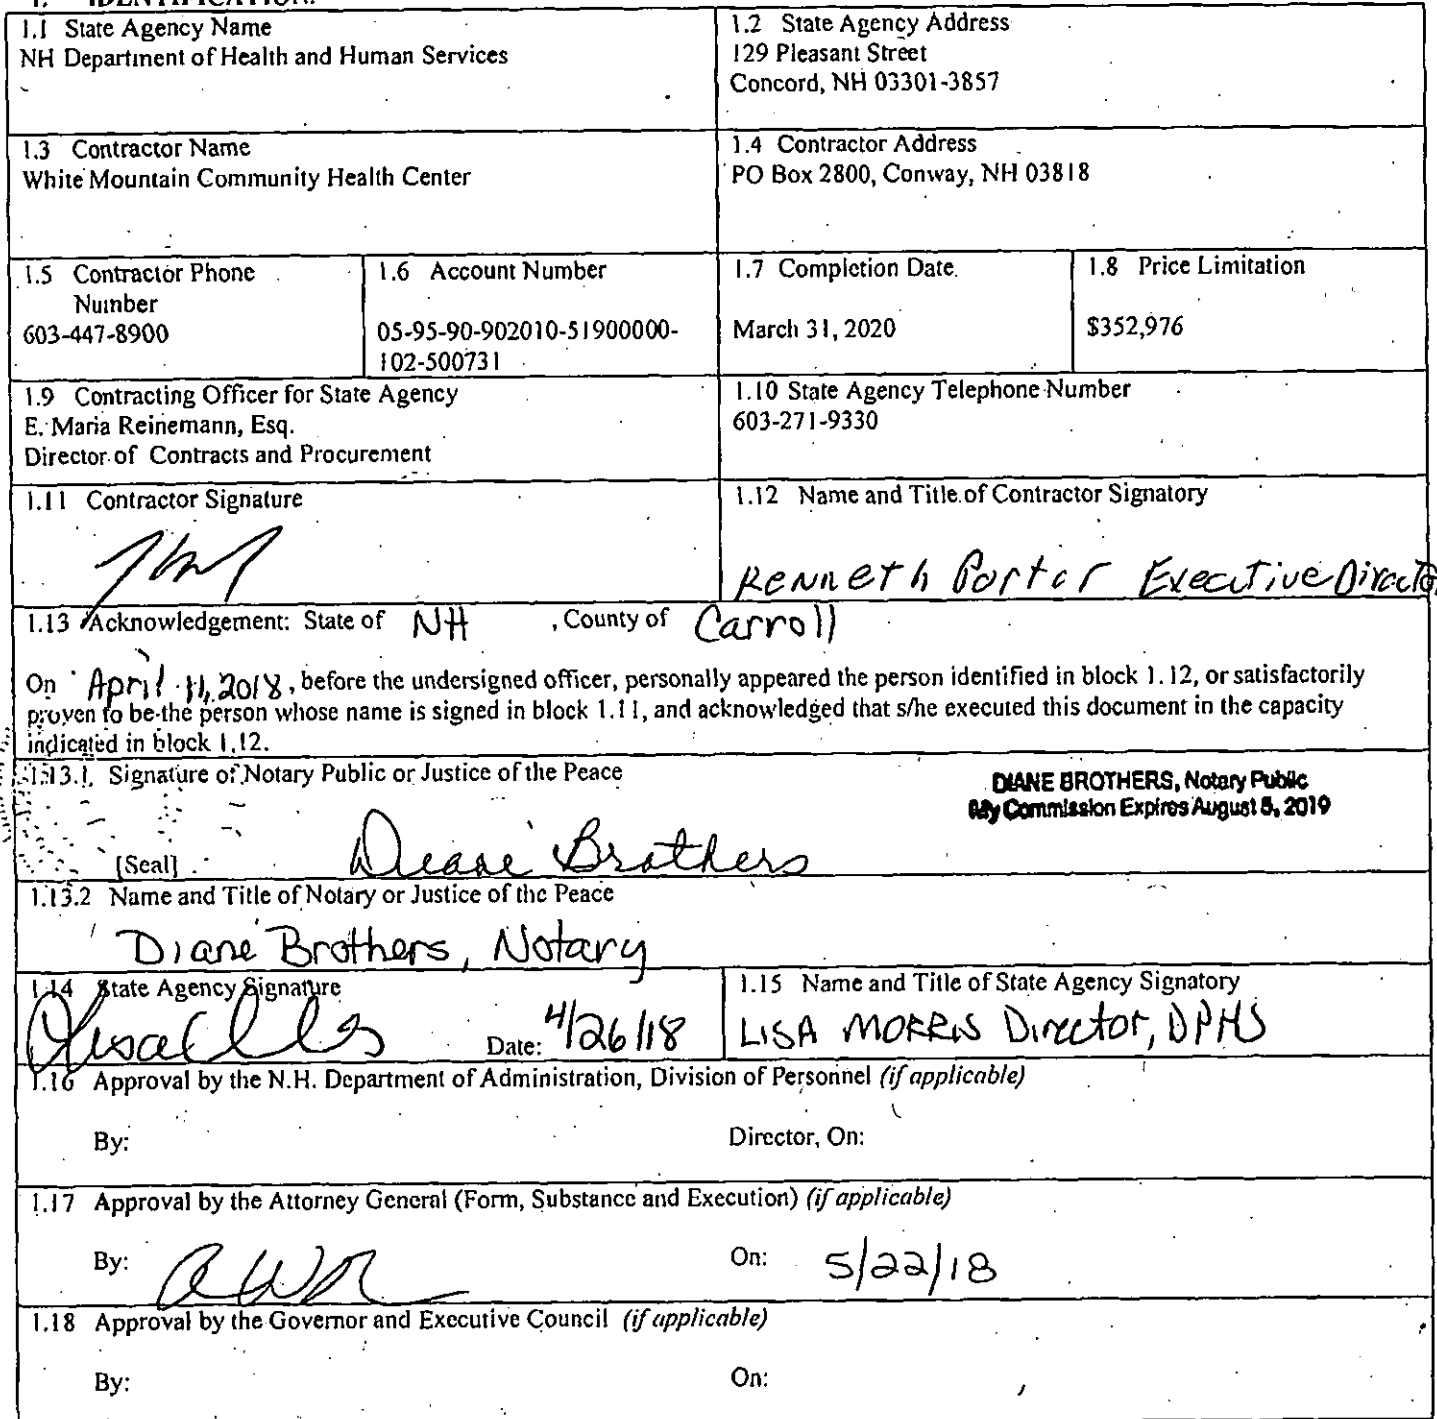 1. IDENTIFICATION.
1.1 State Agency Name
NH Department of Health and Human Services
1.2 State Agency Address
129 Pleasant Street
Concord, NH 03301-3857
1.3 Contractor Name
White Mountain Community Health Center
1.4 Contractor Address
PO Box 2800, Conway, NH 03818
1.5 Contractor Phone
Number
603-447-8900
1.6 Account Number
05-95-90-902010-51900000-
102-500731
1.7 Completion Date
March 31, 2020
1.8 Price Limitation
$352,976
1.9 Contracting Officer for State Agency
E. Maria Reinemann, Esq.
Director of Contracts and Procurement
1.10 State Agency Telephone Number
603-271-9330
1.11 Contractor Signature
1.12 Name and Title of Contractor Signatory
Kenneth Porter Executive Director
1.13 Acknowledgement: State of NH , County of Carroll
On April 11, 2018, before the undersigned officer, personally appeared the person identified in block 1.12, or satisfactorily
proven to be the person whose name is signed in block 1.11, and acknowledged that s/he executed this document in the capacity
indicated in block 1.12.
1.13.1 Signature of Notary Public or Justice of the Peace
DIANE BROTHERS, Notary Public
My Commission Expires August 5, 2019
[Seal] Diane Brothers
1.13.2 Name and Title of Notary or Justice of the Peace
Diane Brothers, Notary
1.14 State Agency Signature
Date: 4/26/18
1.15 Name and Title of State Agency Signatory
LISA MORRIS Director, DPHS
1.16 Approval by the N.H. Department of Administration, Division of Personnel (if applicable)
By: Director, On:
1.17 Approval by the Attorney General (Form, Substance and Execution) (if applicable)
By: On: 5/22/18
1.18 Approval by the Governor and Executive Council (if applicable)
By: On: